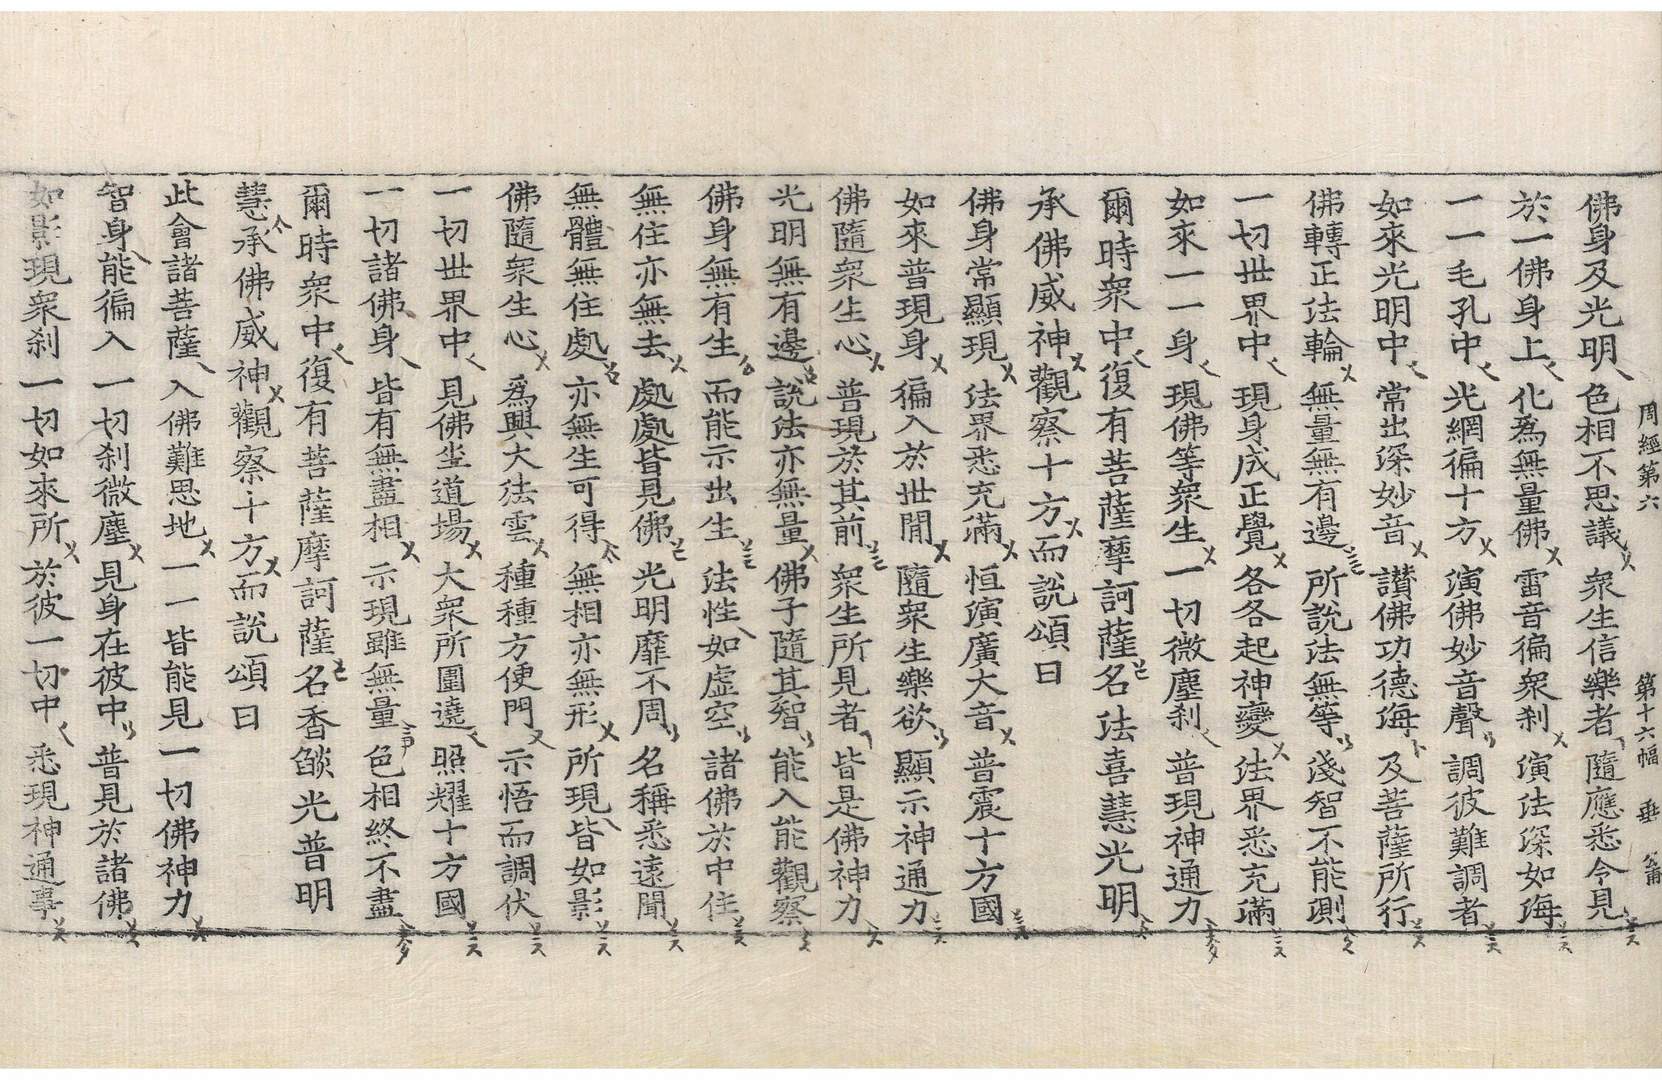 周經第六 第十六幅 垂
佛身及光明 色相不思議 衆生信樂者 隨應悉令見
於一佛身上 化爲無量佛 雷音徧衆刹 演法深如海
一一毛孔中 光網徧十方 演佛妙音聲 調彼難調者
如來光明中 常出深妙音 讃佛功德海 及菩薩所行
佛轉正法輪 無量無有邊 所說法無等 淺智不能測
一切世界中 現身成正覺 各各起神變 法界悉充滿
如來一一身 現佛等衆生 一切微塵刹 普現神通力
爾時衆中復有菩薩摩訶薩名法喜慧光明
承佛威神觀察十方而說頌曰
佛身常顯現 法界悉充滿 恒演廣大音 普震十方國
如來普現身 徧入於世閒 隨衆生樂欲 顯示神通力
佛隨衆生心 普現於其前 衆生所見者 皆是佛神力
光明無有邊 說法亦無量 佛子隨其智 能入能觀察
佛身無有生 而能示出生 法性如虛空 諸佛於中住
無住亦無去 處處皆見佛 光明靡不周 名稱悉遠聞
無體無住處 亦無生可得 無相亦無形 所現皆如影
佛隨衆生心 爲興大法雲 種種方便門 示悟而調伏
一切世界中 見佛坐道場 大衆所圍遶 照耀十方國
一切諸佛身 皆有無盡相 示現雖無量 色相終不盡
爾時衆中復有菩薩摩訶薩名香𦦨光普明
慧承佛威神觀察十方而說頌曰
此會諸菩薩 入佛難思地 一一皆能見 一切佛神力
智身能徧入 一切刹微塵 見身在彼中 普見於諸佛
如影現衆刹 一切如來所 於彼一切中 悉現神通事